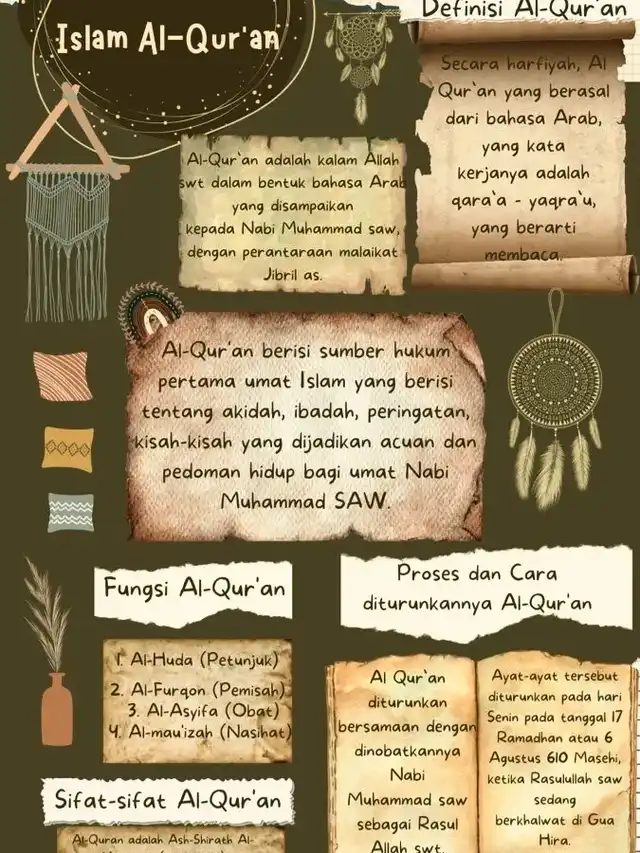 Islam Al-Qur'an
Definisi Al-Qur'an
Secara harfiyah, Al
Qur`an yang berasal
dari bahasa Arab,
yang kata
kerjanya adalah
qara`a - yaqra`u,
yang berarti
membaca.
Al-Qur`an adalah kalam Allah
swt dalam bentuk bahasa Arab
yang disampaikan
kepada Nabi Muhammad saw,
dengan perantaraan malaikat
Jibril as.
Al-Qur'an berisi sumber hukum
pertama umat Islam yang berisi
tentang akidah, ibadah, peringatan,
kisah-kisah yang dijadikan acuan dan
pedoman hidup bagi umat Nabi
Muhammad SAW.
Fungsi Al-Qur'an
1. Al-Huda (Petunjuk)
2. Al-Furqon (Pemisah)
3. Al-Asyifa (Obat)
4. Al-mau'izah (Nasihat)
Proses dan Cara
diturunkannya Al-Qur'an
Al Qur`an
diturunkan
bersamaan dengan
dinobatkannya
Nabi
Muhammad saw
sebagai Rasul
Allah swt.
Ayat-ayat tersebut
diturunkan pada hari
Senin pada tanggal 17
Ramadhan atau 6
Agustus 610 Masehi,
ketika Rasulullah saw
sedang
berkhalwat di Gua
Hira.
Sifat-sifat Al-Qur'an
Al-Quran adalah Ash-Shirath Al-